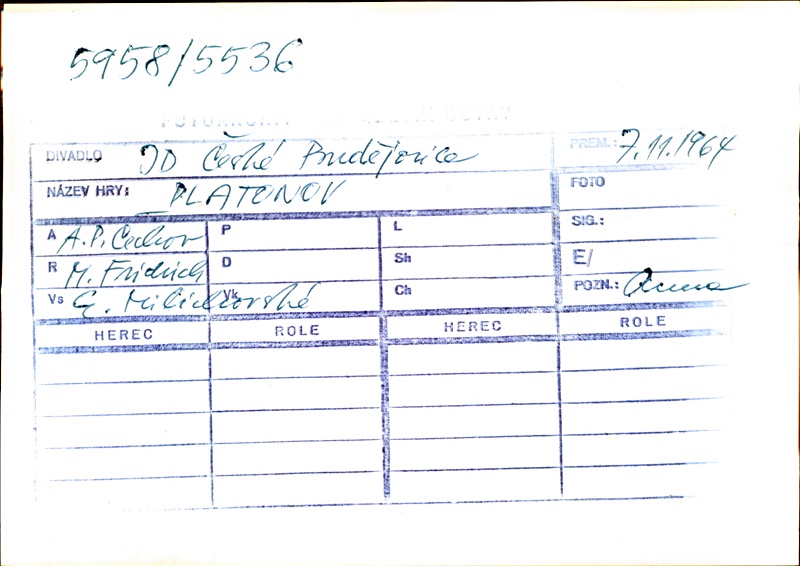 5958/5536
DIVADLO JD České Budějovice PREM.: 7.11.1964
NÁZEV HRY: PLATONOV FOTO
A A.P. Čechov P L SIG.:
R M. Fridrich D Sh E/
Vs G. Vk Ch POZN.:
HEREC ROLE HEREC ROLE